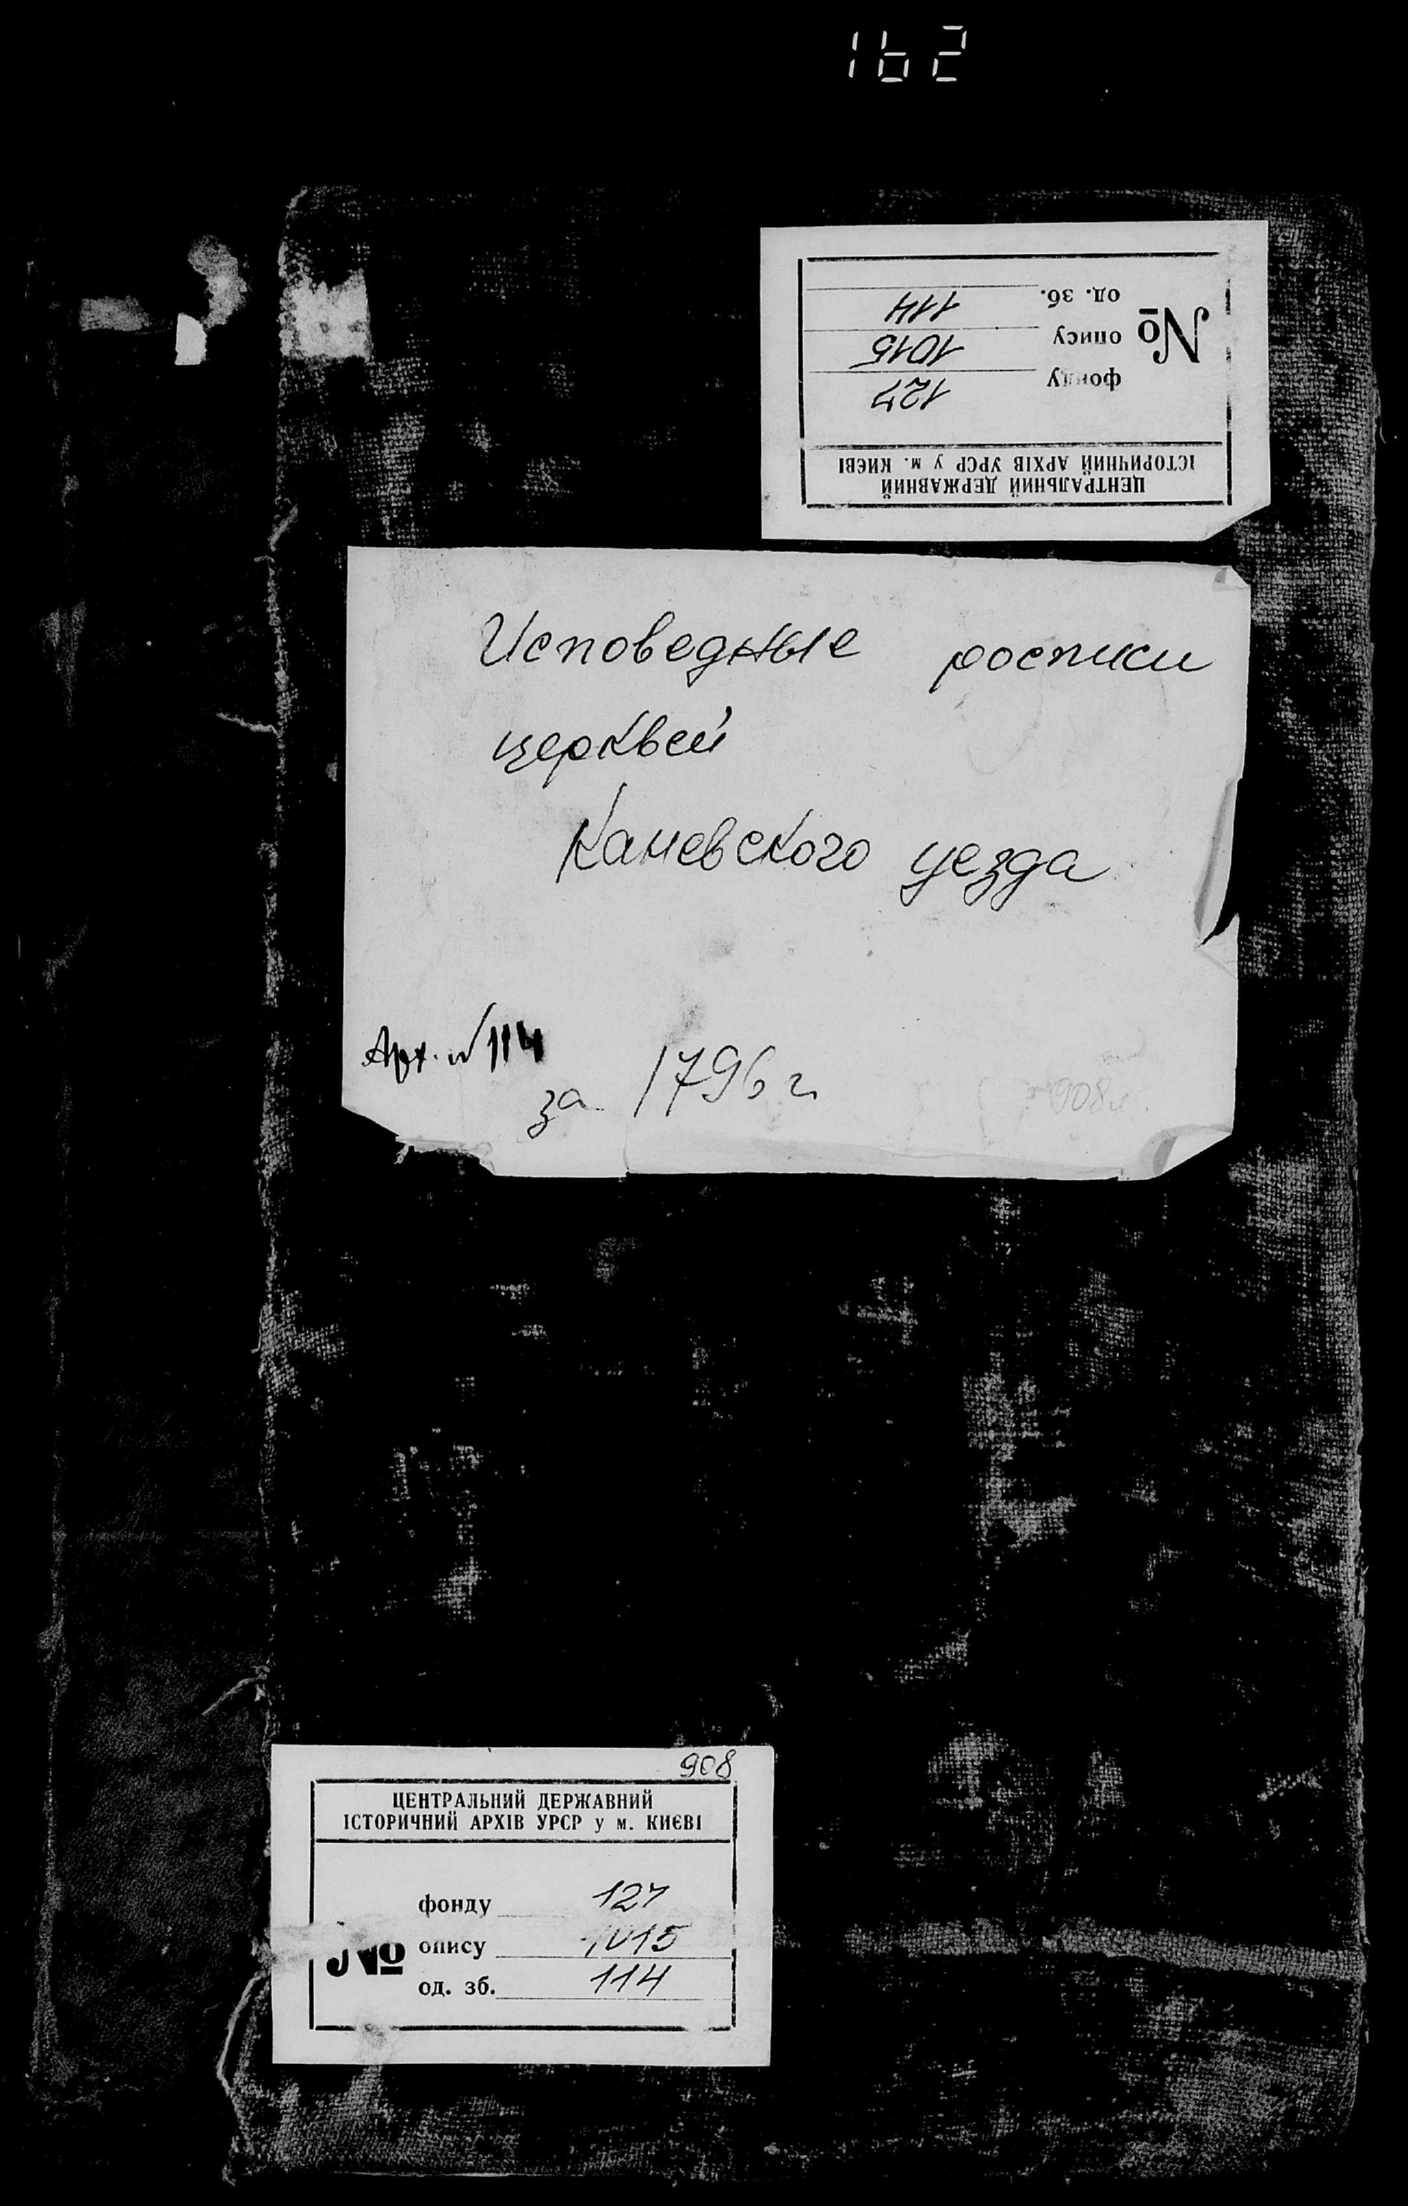 162
ЦЕНТРАЛЬНИЙ ДЕРЖАВНИЙ
ІСТОРИЧНИЙ АРХІВ УРСР у м. КИЄВІ
№
фонду 127
опису 1015
од. зб. 114
Исповедные росписи
церквей
Каневского уезда
Арх. № 114
за 1796 г.
908 л.
908
ЦЕНТРАЛЬНИЙ ДЕРЖАВНИЙ
ІСТОРИЧНИЙ АРХІВ УРСР у м. КИЄВІ
№
фонду 127
опису 1015
од. зб. 114